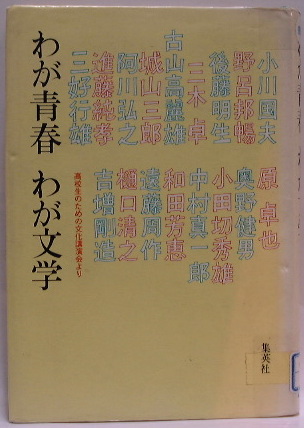 小川国夫
野呂邦暢
後藤明生
三木 卓
古山高麗雄
城山三郎
阿川弘之
進藤純孝
三好行雄
原 卓也
奥野健男
小田切秀雄
中村真一郎
和田芳恵
遠藤周作
樋口清之
吉増剛造
高校生のための文化講演会より
わが青春 わが文学
集英社